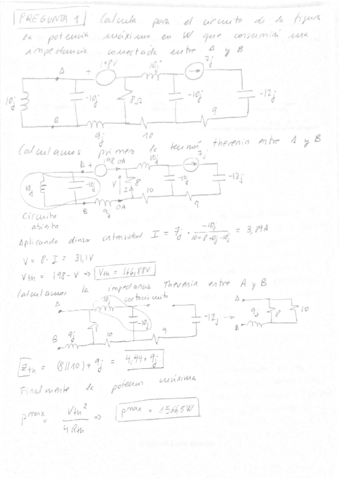 PREGUNTA 1 Calcula para el circuito de la figura
la potencia máxima en W que consumirá una
impedancia conectada entre A y B
A 198V 10j 7j
10j -10j 8Ω -10j -12j
B 9j 10 9
Calculamos primero la tensión thevenin entre A y B
A 198 0A 10j 7j
10j -10j V 8 -10j -12j
B 9j 0A 10 9
Circuito
abierto
Aplicando divisor intensidad I = 7j · -10j / 10+8+10j-10j = 3,89A
V = 8·I = 31,1V
Vth = 198-V ⇒ Vth = 166,88V
Calculamos la impedancia Thevenin entre A y B
A 10j cortocircuito A
8 -10j -12j ⇒ 9j 8 10
B 9j 10 9 B
Zth = (8||10) + 9j = 4,44+9j
Finalmente la potencia máxima
Pmax = Vth² / 4Rth ⇒ Pmax = 1566,5W